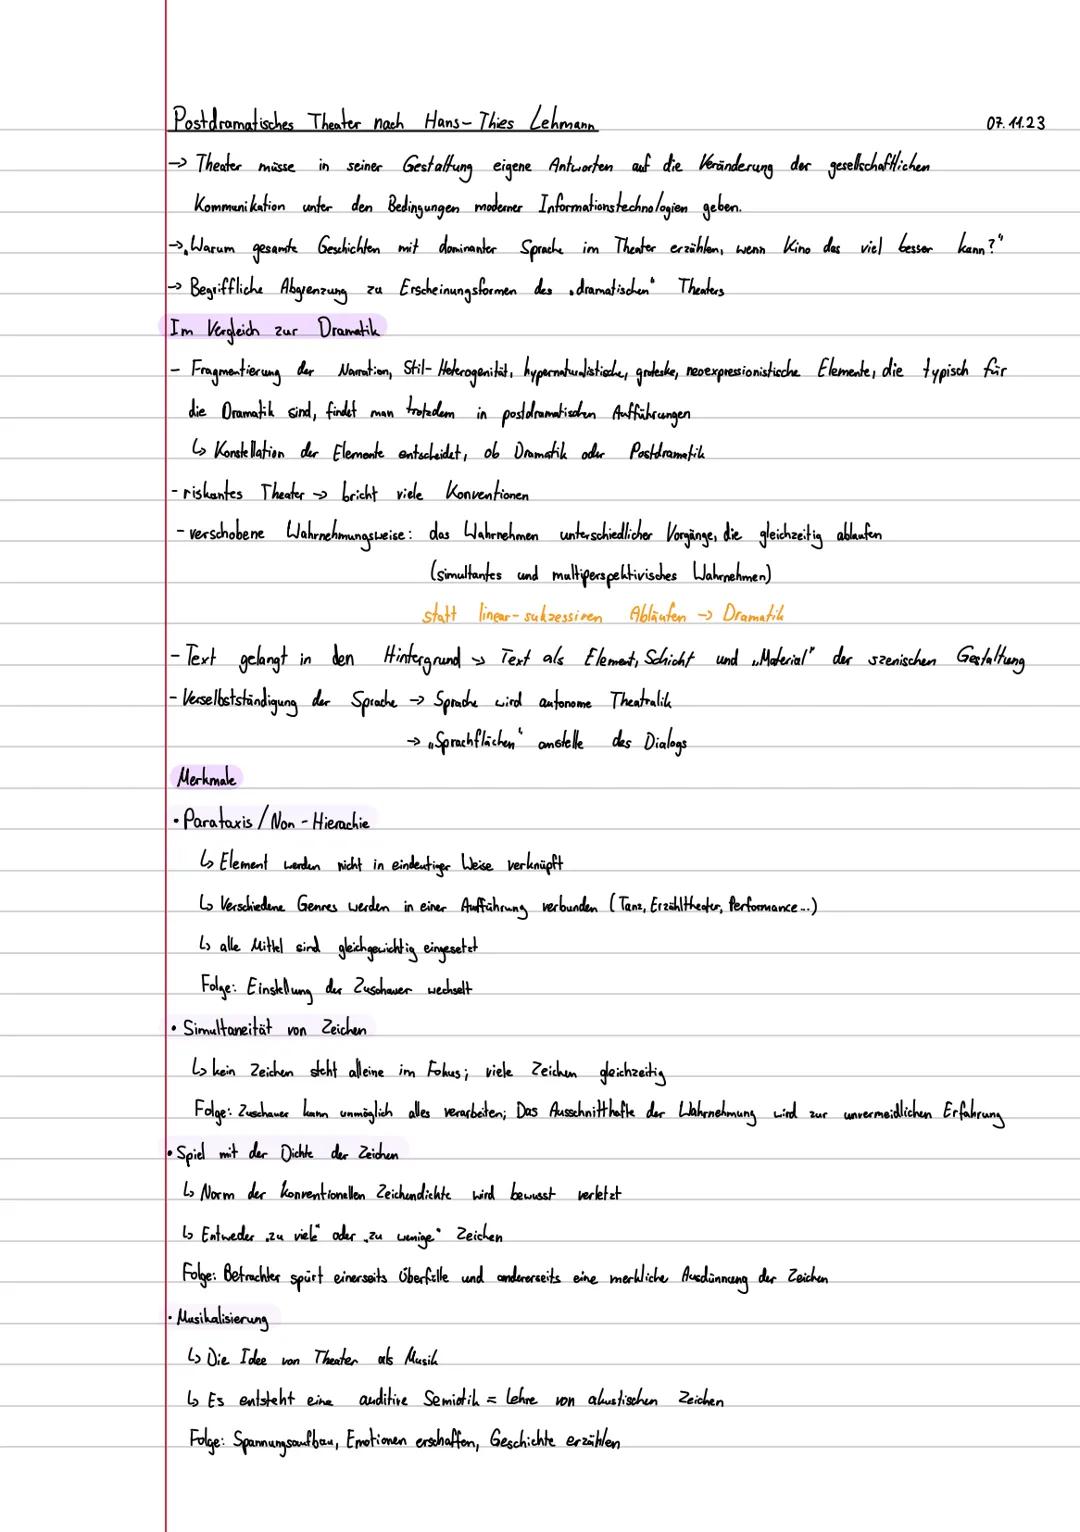 Postdramatisches Theater nach Hans-Thies Lehmann
07.11.23
-> Theater müsse in seiner Gestaltung eigene Antworten auf die Veränderung der gesellschaftlichen
Kommunikation unter den Bedingungen moderner Informationstechnologien geben.
-> „Warum gesamte Geschichten mit dominanter Sprache im Theater erzählen, wenn Kino das viel besser kann?"
-> Begriffliche Abgrenzung zu Erscheinungsformen des „dramatischen" Theaters
Im Vergleich zur Dramatik
- Fragmentierung der Narration, Stil-Heterogenität, hypernaturalistische, groteske, neoexpressionistische Elemente, die typisch für
die Dramatik sind, findet man trotzdem in postdramatischen Aufführungen
↳ Konstellation der Elemente entscheidet, ob Dramatik oder Postdramatik
- riskantes Theater -> bricht viele Konventionen
- verschobene Wahrnehmungsweise: das Wahrnehmen unterschiedlicher Vorgänge, die gleichzeitig ablaufen
(simultantes und multiperspektivisches Wahrnehmen)
statt linear-sukzessiven Abläufen -> Dramatik
- Text gelangt in den Hintergrund -> Text als Element, Schicht und „Material" der szenischen Gestaltung
- Verselbstständigung der Sprache -> Sprache wird autonome Theatralik
-> „Sprachflächen" anstelle des Dialogs
Merkmale
• Parataxis / Non-Hierachie
↳ Element werden nicht in eindeutiger Weise verknüpft
↳ Verschiedene Genres werden in einer Aufführung verbunden (Tanz, Erzähltheater, Performance...)
↳ alle Mittel sind gleichgewichtig eingesetzt
Folge: Einstellung der Zuschauer wechselt
• Simultaneität von Zeichen
↳ kein Zeichen steht alleine im Fokus; viele Zeichen gleichzeitig
Folge: Zuschauer kann unmöglich alles verarbeiten; Das Ausschnitthafte der Wahrnehmung wird zur unvermeidlichen Erfahrung
• Spiel mit der Dichte der Zeichen
↳ Norm der konventionellen Zeichendichte wird bewusst verletzt
↳ Entweder „zu viele" oder „zu wenige" Zeichen
Folge: Betrachter spürt einerseits Überfülle und andererseits eine merkliche Ausdünnung der Zeichen
• Musikalisierung
↳ Die Idee von Theater als Musik
↳ Es entsteht eine auditive Semiotik = Lehre von akustischen Zeichen
Folge: Spannungsaufbau, Emotionen erschaffen, Geschichte erzählen